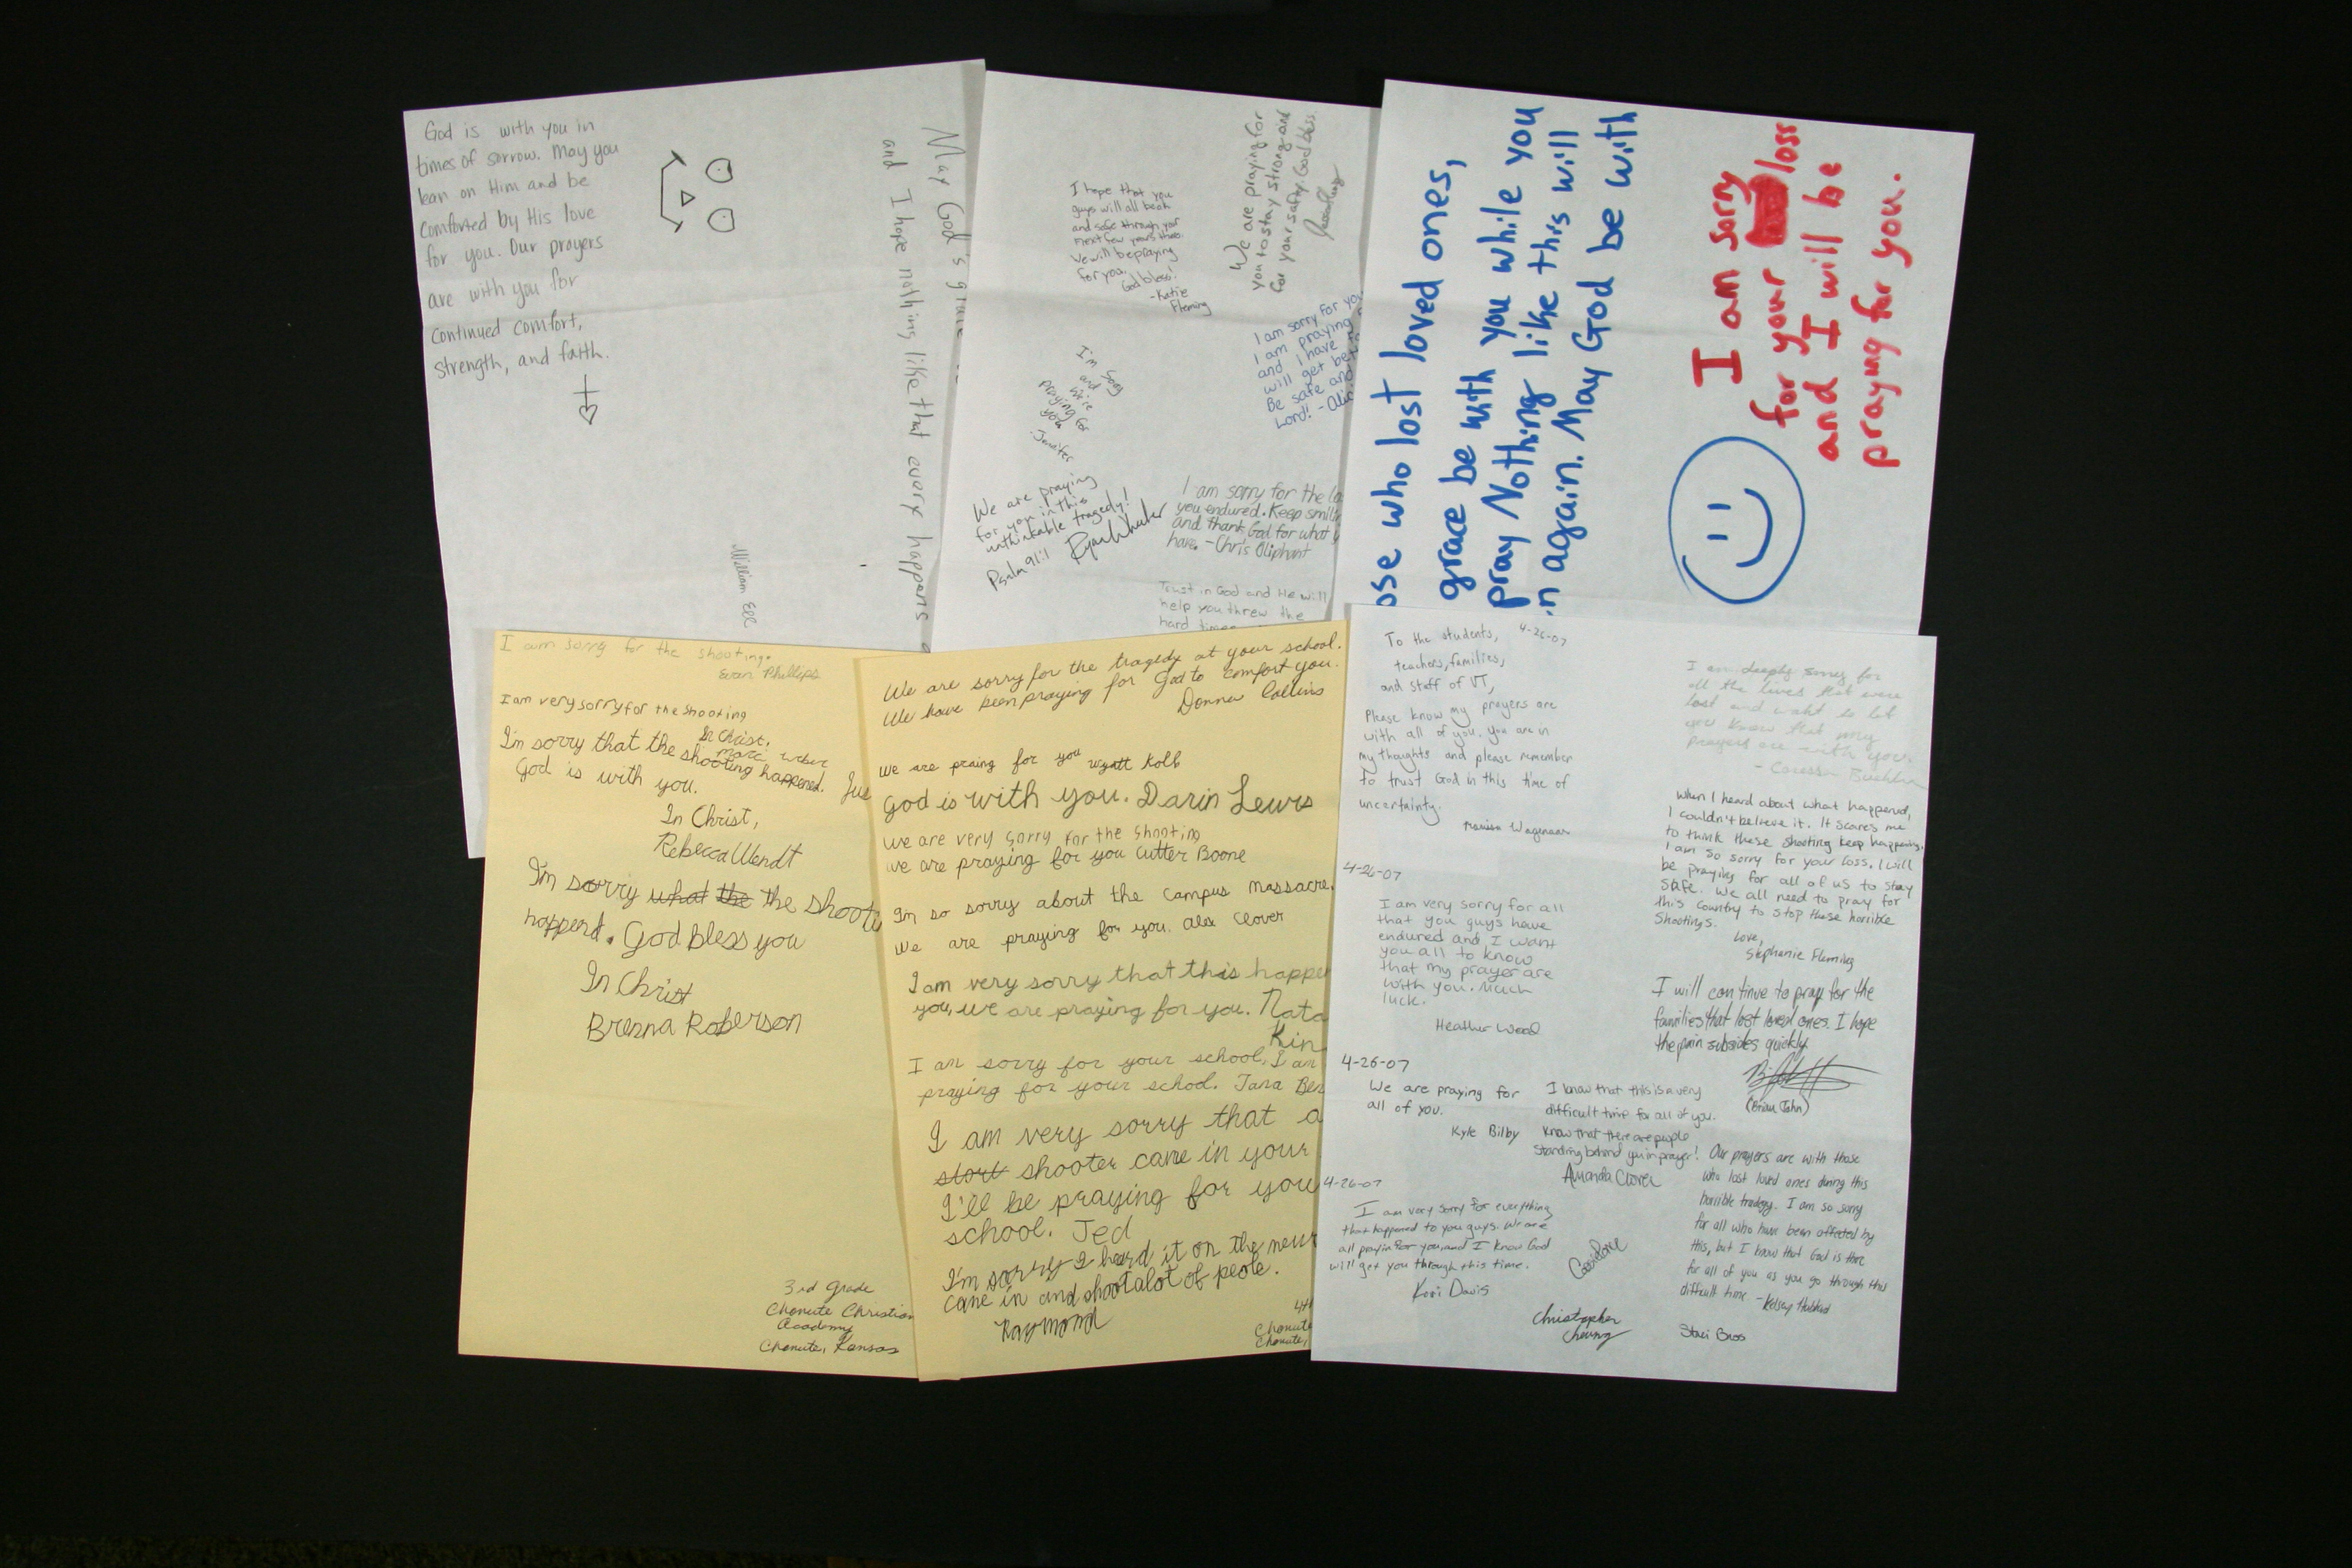 God is with you in
times of sorrow. May you
lean on Him and be
comforted by His love
for you. Our prayers
are with you for
continued comfort,
strength, and faith.
May God's grace
and I hope nothing like that every happens
William Ell
I hope that you
guys will all be ok
and safe through your
next few years there.
We will be praying
for you.
God bless!
-Katie
Fleming
We are praying for
you to stay strong and
for your safty. God bless
I am sorry for you
I am praying
and I have
will get be
Be safe and
Lord! -Alic
I'm Sorry
and
We're
praying for
you
-Jennifer
We are praying
for you in this
unthinkable tragedy!
Psalm 91:1 Ryan Wheeler
I am sorry for the lo
you endured. Keep smili
and thank God for what y
have. -Chris Oliphant
Trust in God and He will
help you threw the
hard times
ose who lost loved ones,
grace be with you while you
pray Nothing like this will
n again. May God be with
I am sorry
for your loss
and I will be
praying for you.
I am sorry for the shooting.
Evan Phillips
I am very sorry for the shooting
In Christ,
Marc Weber
I'm sorry that the shooting happened.
God is with you.
In Christ,
Rebecca Wendt
I'm sorry what the the shoote
happend. God bless you
In Christ
Brenna Roberson
3rd Grade
Chanute Christian
Academy
Chanute, Kansas
We are sorry for the tragedy at your school.
We have been praying for God to comfort you.
Donna Collins
We are praing for you Wyatt Kolb
God is with you. Darin Lewis
We are very sorry for the shooting
we are praying for you Cutter Boone
I'm so sorry about the campus massacre.
We are praying for you. Alex Clover
I am very sorry that this happe
you, we are praying for you. Nata
Kin
I am sorry for your school, I am
praying for your school. Tana Ben
I am very sorry that a
start shooter came in your
I'll be praying for you
school. Jed
I'm sorry I heard it on the new
came in and shoot alot of peole.
Raymond
4th
Chanute
Chanute,
To the students, 4-26-07
teachers, families,
and staff of VT,
Please know my prayers are
with all of you. You are in
my thoughts and please remember
to trust God in this time of
uncertainty.
Marissa Wagenaar
4-26-07
I am very sorry for all
that you guys have
endured and I want
you all to know
that my prayer are
with you. Much
luck.
Heather Wood
4-26-07
We are praying for
all of you.
Kyle Bilby
4-26-07
I am very sorry for everything
that happened to you guys. We are
all prayin for you and I know God
will get you through this time.
Kori Davis
I am deeply sorry for
all the lives that were
lost and want to let
you know that my
prayers are with you.
When I heard about what happened,
I couldn't believe it. It scares me
to think these shooting keep happening.
I am so sorry for your loss. I will
be praying for all of us to stay
safe. We all need to pray for
this country to stop these horrible
shootings.
Love,
Stephanie Fleming
I will continue to pray for the
families that lost loved ones. I hope
the pain subsides quickly.
(Brian Jahn)
I know that this is a very
difficult time for all of you.
Know that there are people
standing behind you in prayer!
Amanda Clover
Our prayers are with those
who lost loved ones during this
horrible tradegy. I am so sorry
for all who have been affected by
this, but I know that God is there
for all of you as you go through this
difficult time -Kelsey Hubbard
Christopher
Cheung
Staci Bross